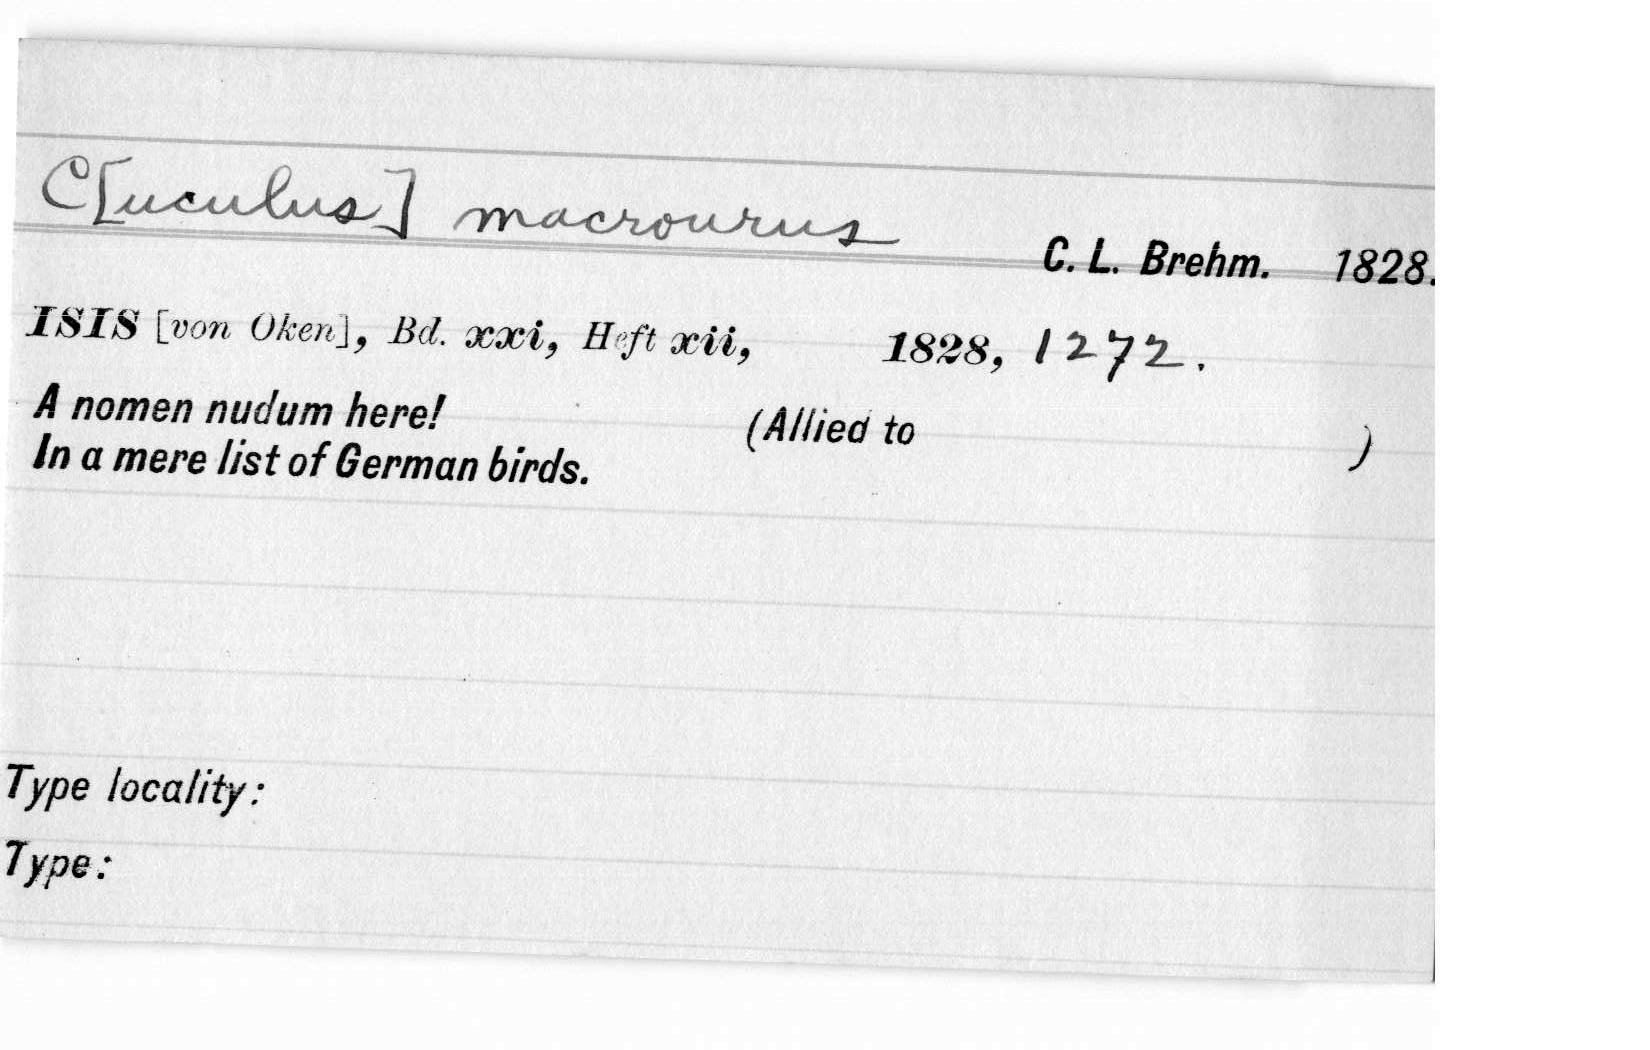 C[uculus] macrourus
C. L. Brehm. 1828.
ISIS [von Oken], Bd. xxi, Heft xii, 1828, 1272.
A nomen nudum here! (Allied to )
In a mere list of German birds.
Type locality:
Type: